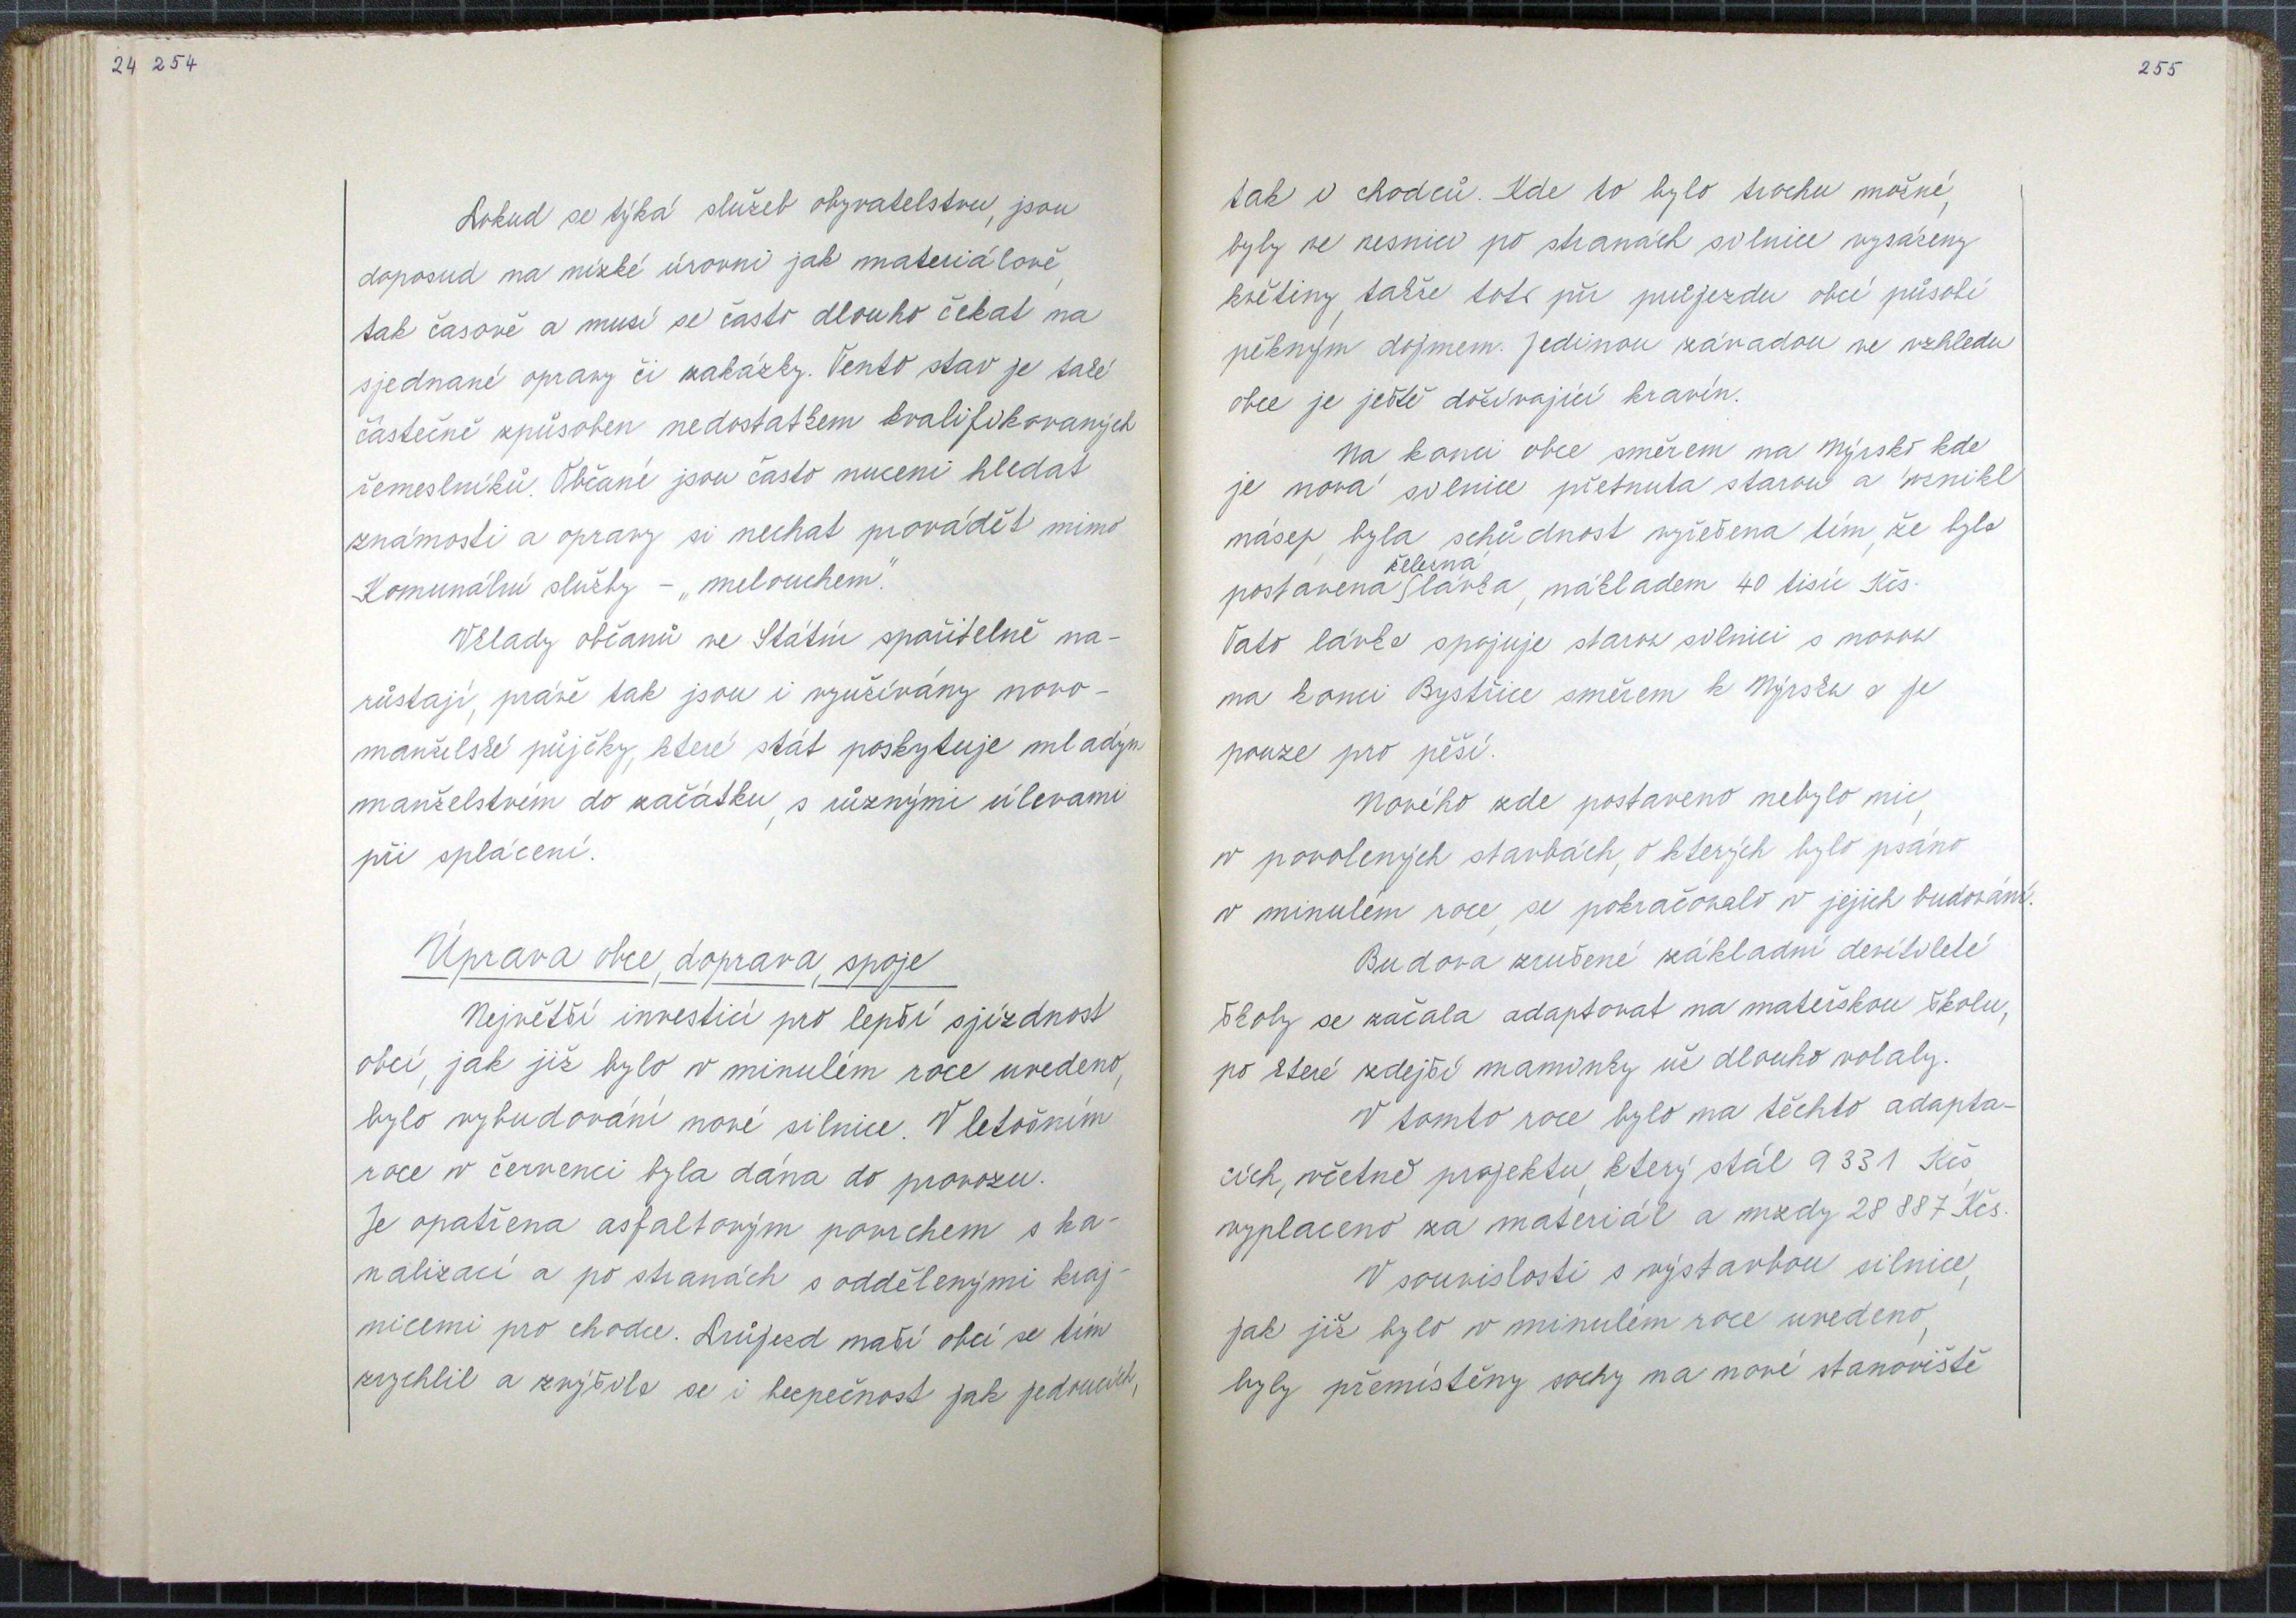 24 254
Pokud se týká služeb obyvatelstvu, jsou
doposud na nízké úrovni jak materiálově,
tak časově a musí se často dlouho čekat na
sjednané opravy či zakázky. Tento stav je také
částečně způsoben nedostatkem kvalifikovaných
řemeslníků. Občané jsou často nuceni hledat
známosti a opravy si nechat provádět mimo
Komunální služby - „melouchem".
Vklady občanů ve Státní spořitelně na-
růstají, právě tak jsou i využívány novo-
manželské půjčky, které stát poskytuje mladým
manželstvím do začátku, s různými úlevami
při splácení.
Úprava obce, doprava, spoje
Největší investicí pro lepší sjízdnost
obcí, jak již bylo v minulém roce uvedeno,
bylo vybudování nové silnice. V letošním
roce v červenci byla dána do provozu.
Je opatřena asfaltovým povrchem s ka-
nalizací a po stranách s oddělenými kraj-
nicemi pro chodce. Průjezd naší obcí se tím
zrychlil a zvýšila se i bezpečnost jak jedoucích,
255
tak i chodců. Kde to bylo trochu možné,
byly ve vesnici po stranách silnice vysázeny
květiny, takže toto při průjezdu obcí působí
pěkným dojmem. Jedinou závadou ve vzhledu
obce je ještě dožívající kravín.
Na konci obce směrem na Nýrsko kde
je nová silnice přetnuta starou a vznikl
násep, byla schůdnost vyřešena tím, že byla
železná
postavena lávka, nákladem 40 tisíc Kčs.
Tato lávka spojuje starou silnici s novou
na konci Bystřice směrem k Nýrsku a je
pouze pro pěší.
Nového zde postaveno nebylo nic,
v povolených stavbách, o kterých bylo psáno
v minulém roce, se pokračovalo v jejich budování.
Budova zrušené základní devítileté
školy se začala adaptovat na mateřskou školu,
po které zdejší maminky už dlouho volaly.
V tomto roce bylo na těchto adapta-
cích, včetně projektu, který stál 9 331 Kčs,
vyplaceno za materiál a mzdy 28 887 Kčs.
V souvislosti s výstavbou silnice,
jak již bylo v minulém roce uvedeno,
byly přemístěny sochy na nové stanoviště